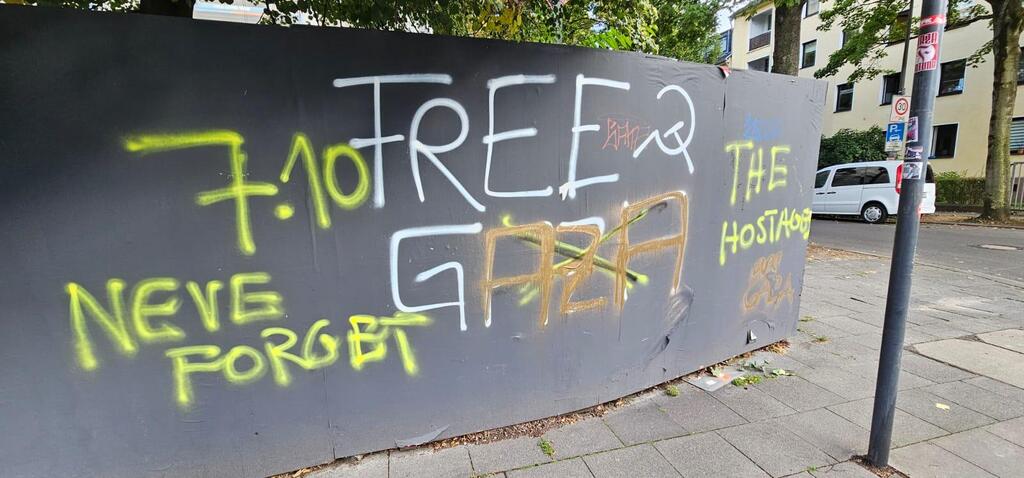 FREE
7.10
GAZA
NEVER
FORGET
THE
HOSTAGES
30
P